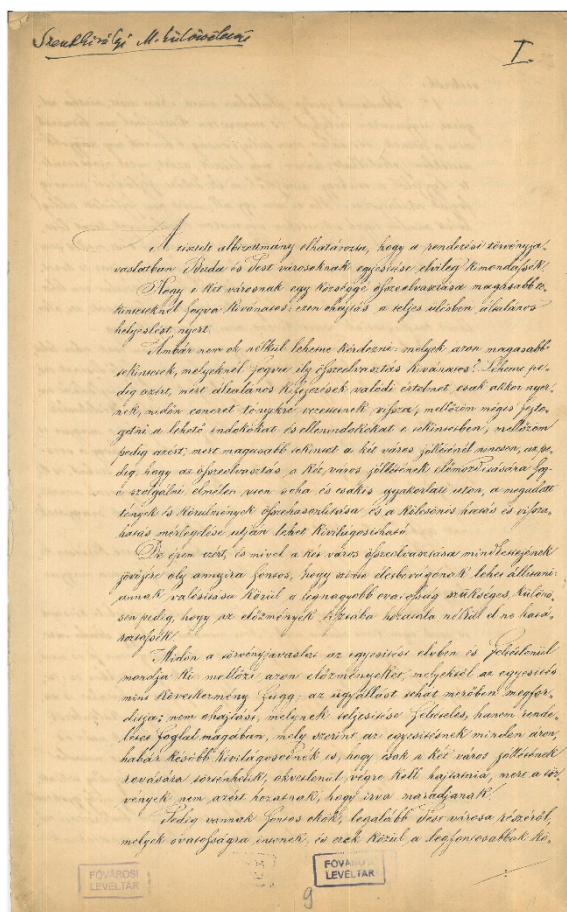 Szentkirályi M. különvéleménye
I.
A tisztelt albizottmány elhatározta, hogy a rendezési törvényja-
vaslatban Buda és Pest városoknak egyesitése elvileg kimondassék.
Hogy e két városnak egy községgé összeolvasztása magasabb te-
kinteteknél fogva kivánatos: ezen ohajtás a teljes ülésben általános
helyeslést nyert.
Ámbár nem ok nélkül lehetne kérdezni: melyek azon magasabb
tekintetek, melyeknél fogva ily összeolvasztás kivánatos? lehetne pe-
dig azért, mert általános kifejezések valódi értelmet csak akkor nyer-
nek, midőn concret tényekre vezettetnek vissza, mellőzöm mégis fejte-
getni a lehető indokokat és ellenindokokat e tekintetben, mellőzöm
pedig azért, mert magasabb tekintet a két város jóllétenél nincsen, az pe-
dig, hogy az összeolvasztás a két város jóllétének előmozditására fog-
ó szolgálni elméleti uton soha és csakis gyakorlati uton, a megadott
tények és körülmények összehasonlitása és a kölcsönös hatás és vissza-
hatás mérlegelése utján lehet kivilágositható.
De épen ezért, és mivel a két város összeolvasztása mindkettejének
jövőjére oly annyira fontos, hogy azt életbevágónak lehet állitani:
annak valósitása körül a legnagyobb ovatosság szükséges, különö-
sen pedig, hogy az előzmények tisztába hozatala nélkül el ne hatá-
roztassék.
Midőn a törvényjavaslat az egyesitést elvben és feltétlenül
mondja ki mellőzi azon előzményeket, melyektől az egyesités
mint következmény függ; az ügyállást tehát merőben megfor-
ditja; nem ohajtást, melynek teljesitése feltételes, hanem rende-
letet foglal magában, mely szerint az egyesitésnek minden áron,
habár később kivilágosodnék is, hogy csak a két város jóllétének
rovására történhetik, okvetlenül végre kell hajtatnia, mert a tör-
vények nem azért hozatnak, hogy irva maradjanak.
Pedig vannak fontos okok, legalább Pest városa részéről,
melyek ovatosságra intenek, és ezek közül a legfontosabbak kö-
FŐVÁROSI
LEVÉLTÁR
FŐVÁROSI
LEVÉLTÁR
9